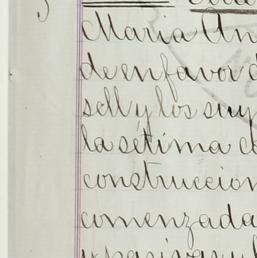 Maria An
de en favor d
sell y los suy
la sétima c
construccion
comenzada